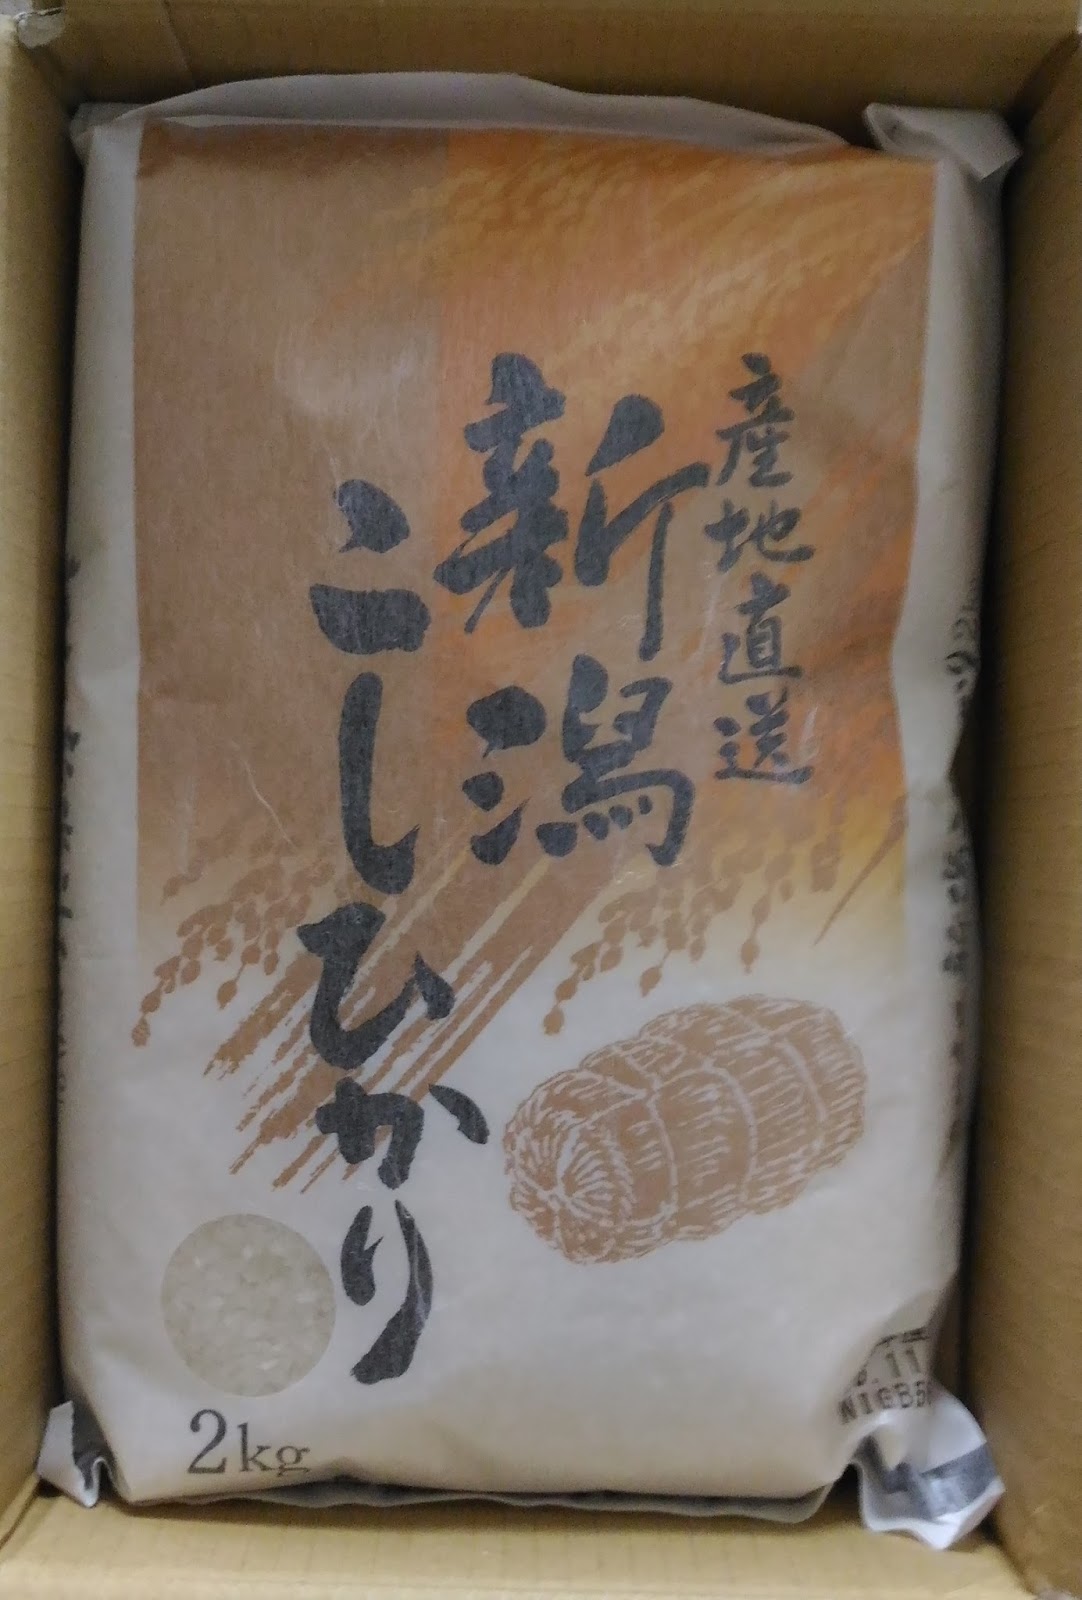 産地直送
新潟
こしひかり
2kg
.11
NIGB5